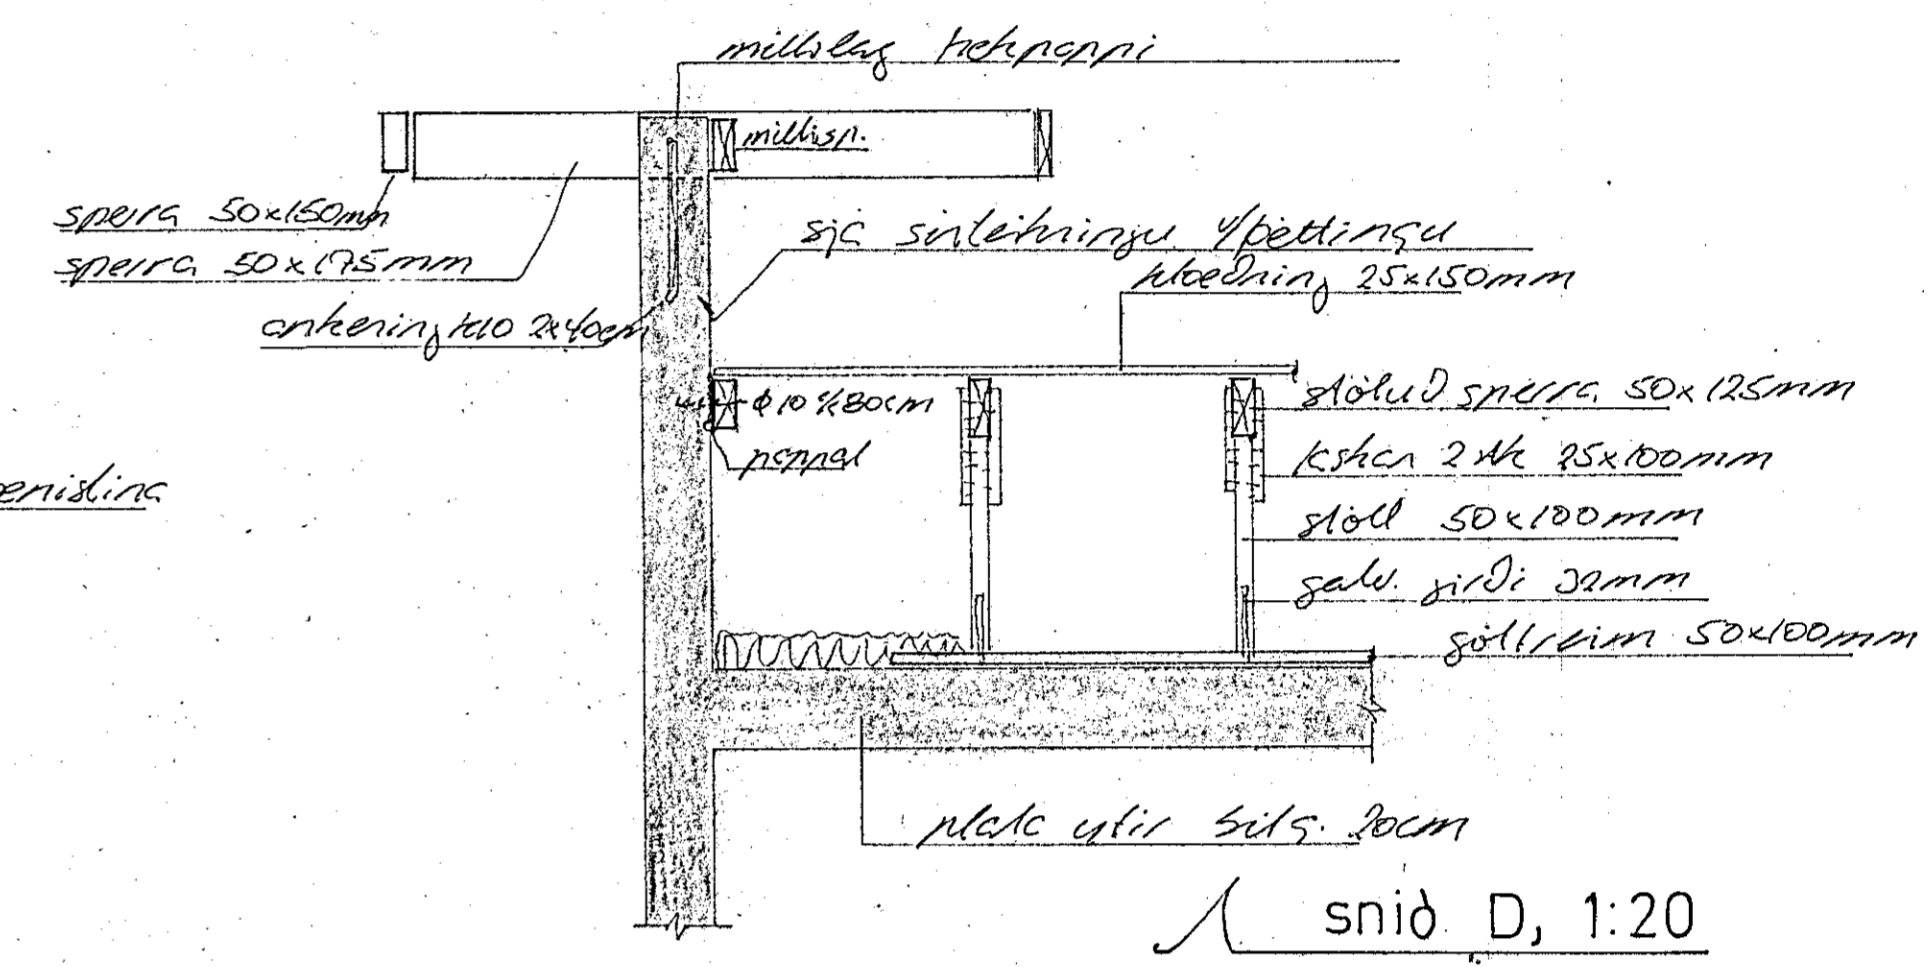 millilag þakpappi
millisp.
sperra 50x150mm
sperra 50x175mm
sjá sérteikningu v/þéttingu
klæðning 25x150mm
ankering k10 2x40cm
stóluð sperra 50x125mm
ø10 c/c80cm
pappal
2 stk 25x100mm
stóll 50x100mm
galv. girði 32mm
gólfreim 50x100mm
plata yfir bílg. 20cm
snið D, 1:20